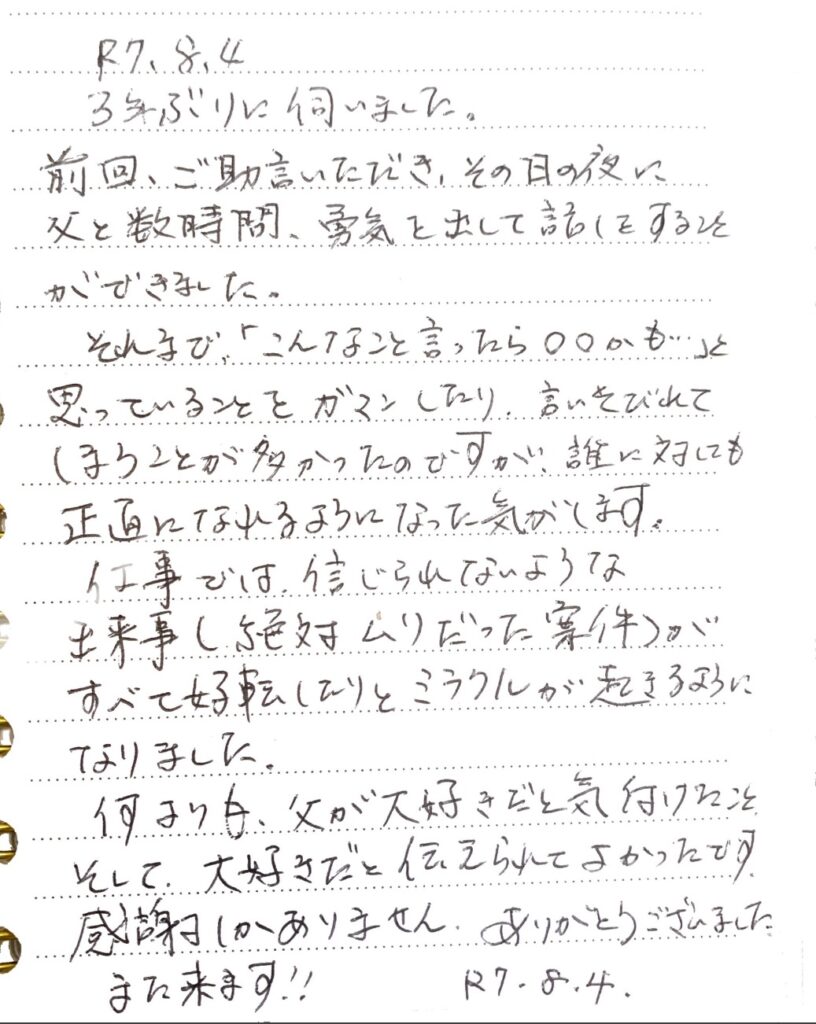 R7.8.4
3年ぶりに伺いました。
前回、ご助言いただき、その日の夜に
父と数時間、勇気を出して話しをすること
ができました。
それまで、「こんなこと言ったら〇〇かも…」と
思っていることをガマンしたり、言いそびれて
しまうことが多かったのですが、誰に対しても
正直になれるようになった気がします。
仕事では、信じられないような
出来事(絶対ムリだった案件)が
すべて好転したりとミラクルが起きるように
なりました。
何よりも、父が大好きだと気付けたこと
そして、大好きだと伝えられてよかったです
感謝しかありません。ありがとうございました
また来ます!! R7.8.4.